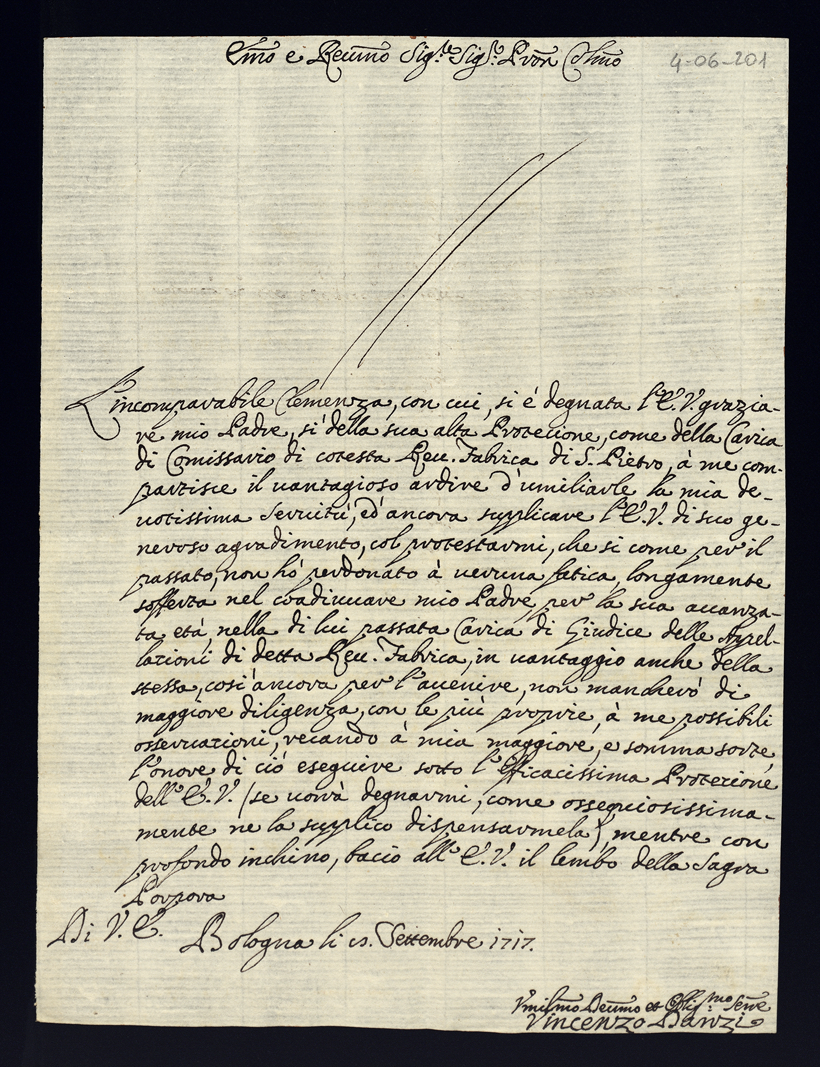 Em̄o e Reu͞mo Sig.re Sig.re P͞ron Col͞mo
4-06-201
L'incomparabile Clemenza, con cui, si é degnata l'E.V. grazia-
re mio Padre, si della sua alta Protezione, come della Carica
di Comissario di cotesta Reu. Fabrica di S. Pietro, à me com-
partisce il uantagioso ardire d'umiliarle la mia de-
uotissima Seruitú, ed'ancora supplicare l'E.V. di suo ge-
neroso agradimento, col protestarmi, che si come per il
passato, non hó perdonato à ueruna fatica, longamente
sofferta nel coadiuuare mio Padre, per la sua auanza-
ta etá, nella di lui passata Carica di Giudice delle Apel-
lazioni di detta Reu. Fabrica, in uantaggio anche della
stessa, cosi ancora per l'auuenire, non mancheró di
maggiore diligenza, con le piú proprie, à me possibili
osseruazioni, recando à mia maggiore, e somma sorte
l'onore di ció eseguire sotto l'Efficacissima Protezione
dell'E.V. (se uorrà degnarmi, come ossequiosissima-
mente ne la supplico dispensarmela), mentre con
profondo inchino, bacio all'E.V. il lembo della Sagra
Porpora
Di V.E. Bologna li 15. Settembre 1717.
Vmil͞mo Deu͞mo et Oblig.mo Ser͞re
Vincenzo